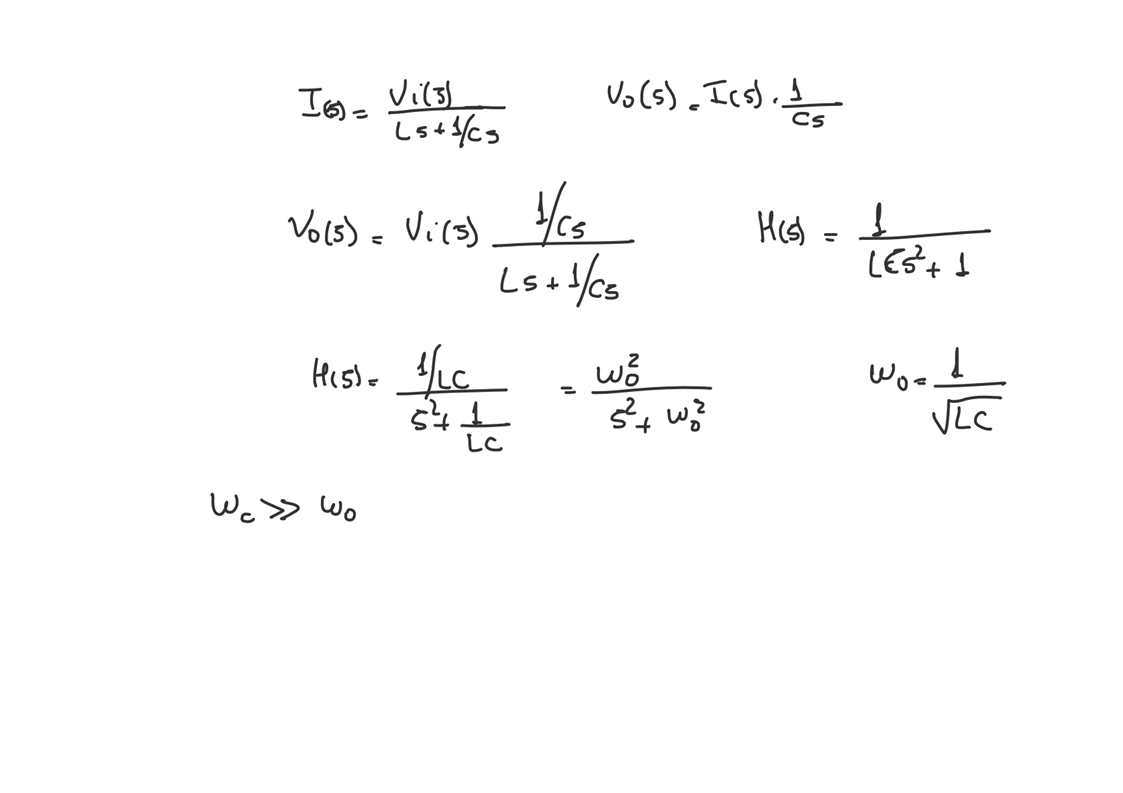 I(s) = Vi(s) / (Ls + 1/Cs)    Vo(s) = I(s) · 1/Cs
Vo(s) = Vi(s) (1/Cs) / (Ls + 1/Cs)    H(s) = 1 / (LCs² + 1)
H(s) = (1/LC) / (s² + 1/LC) = ω₀² / (s² + ω₀²)    ω₀ = 1/√LC
ωc >> ω₀